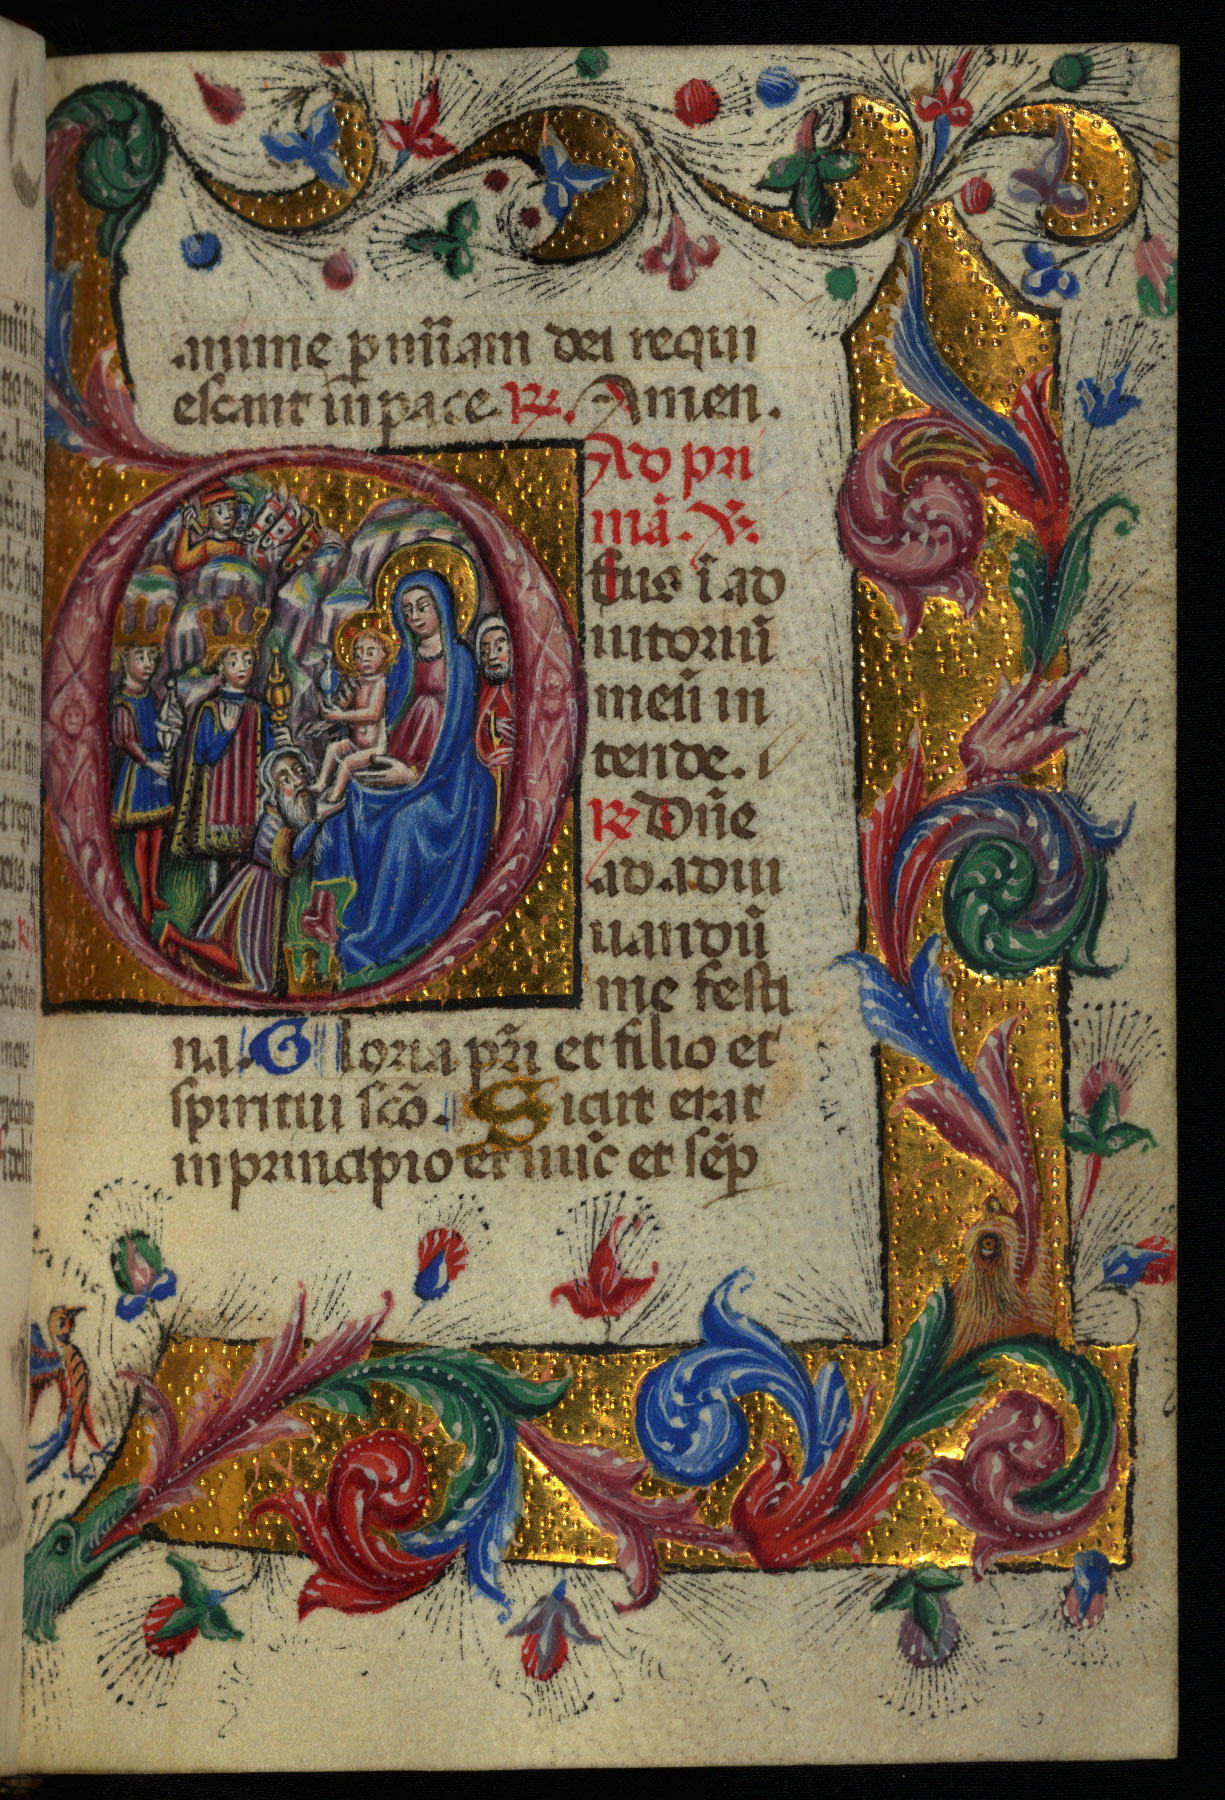 anime p mīam dei requi
escant in pace ℟. Amen.
Ad pri
mā. ℣.
Eus ī ad
iutoriū
meū in
tende.
℟ Dn̄e
ad adiu
uandū
me festi
na. Gloria pr̄i et filio et
spiritui scō. Sicut erat
in principio et nūc et sēp